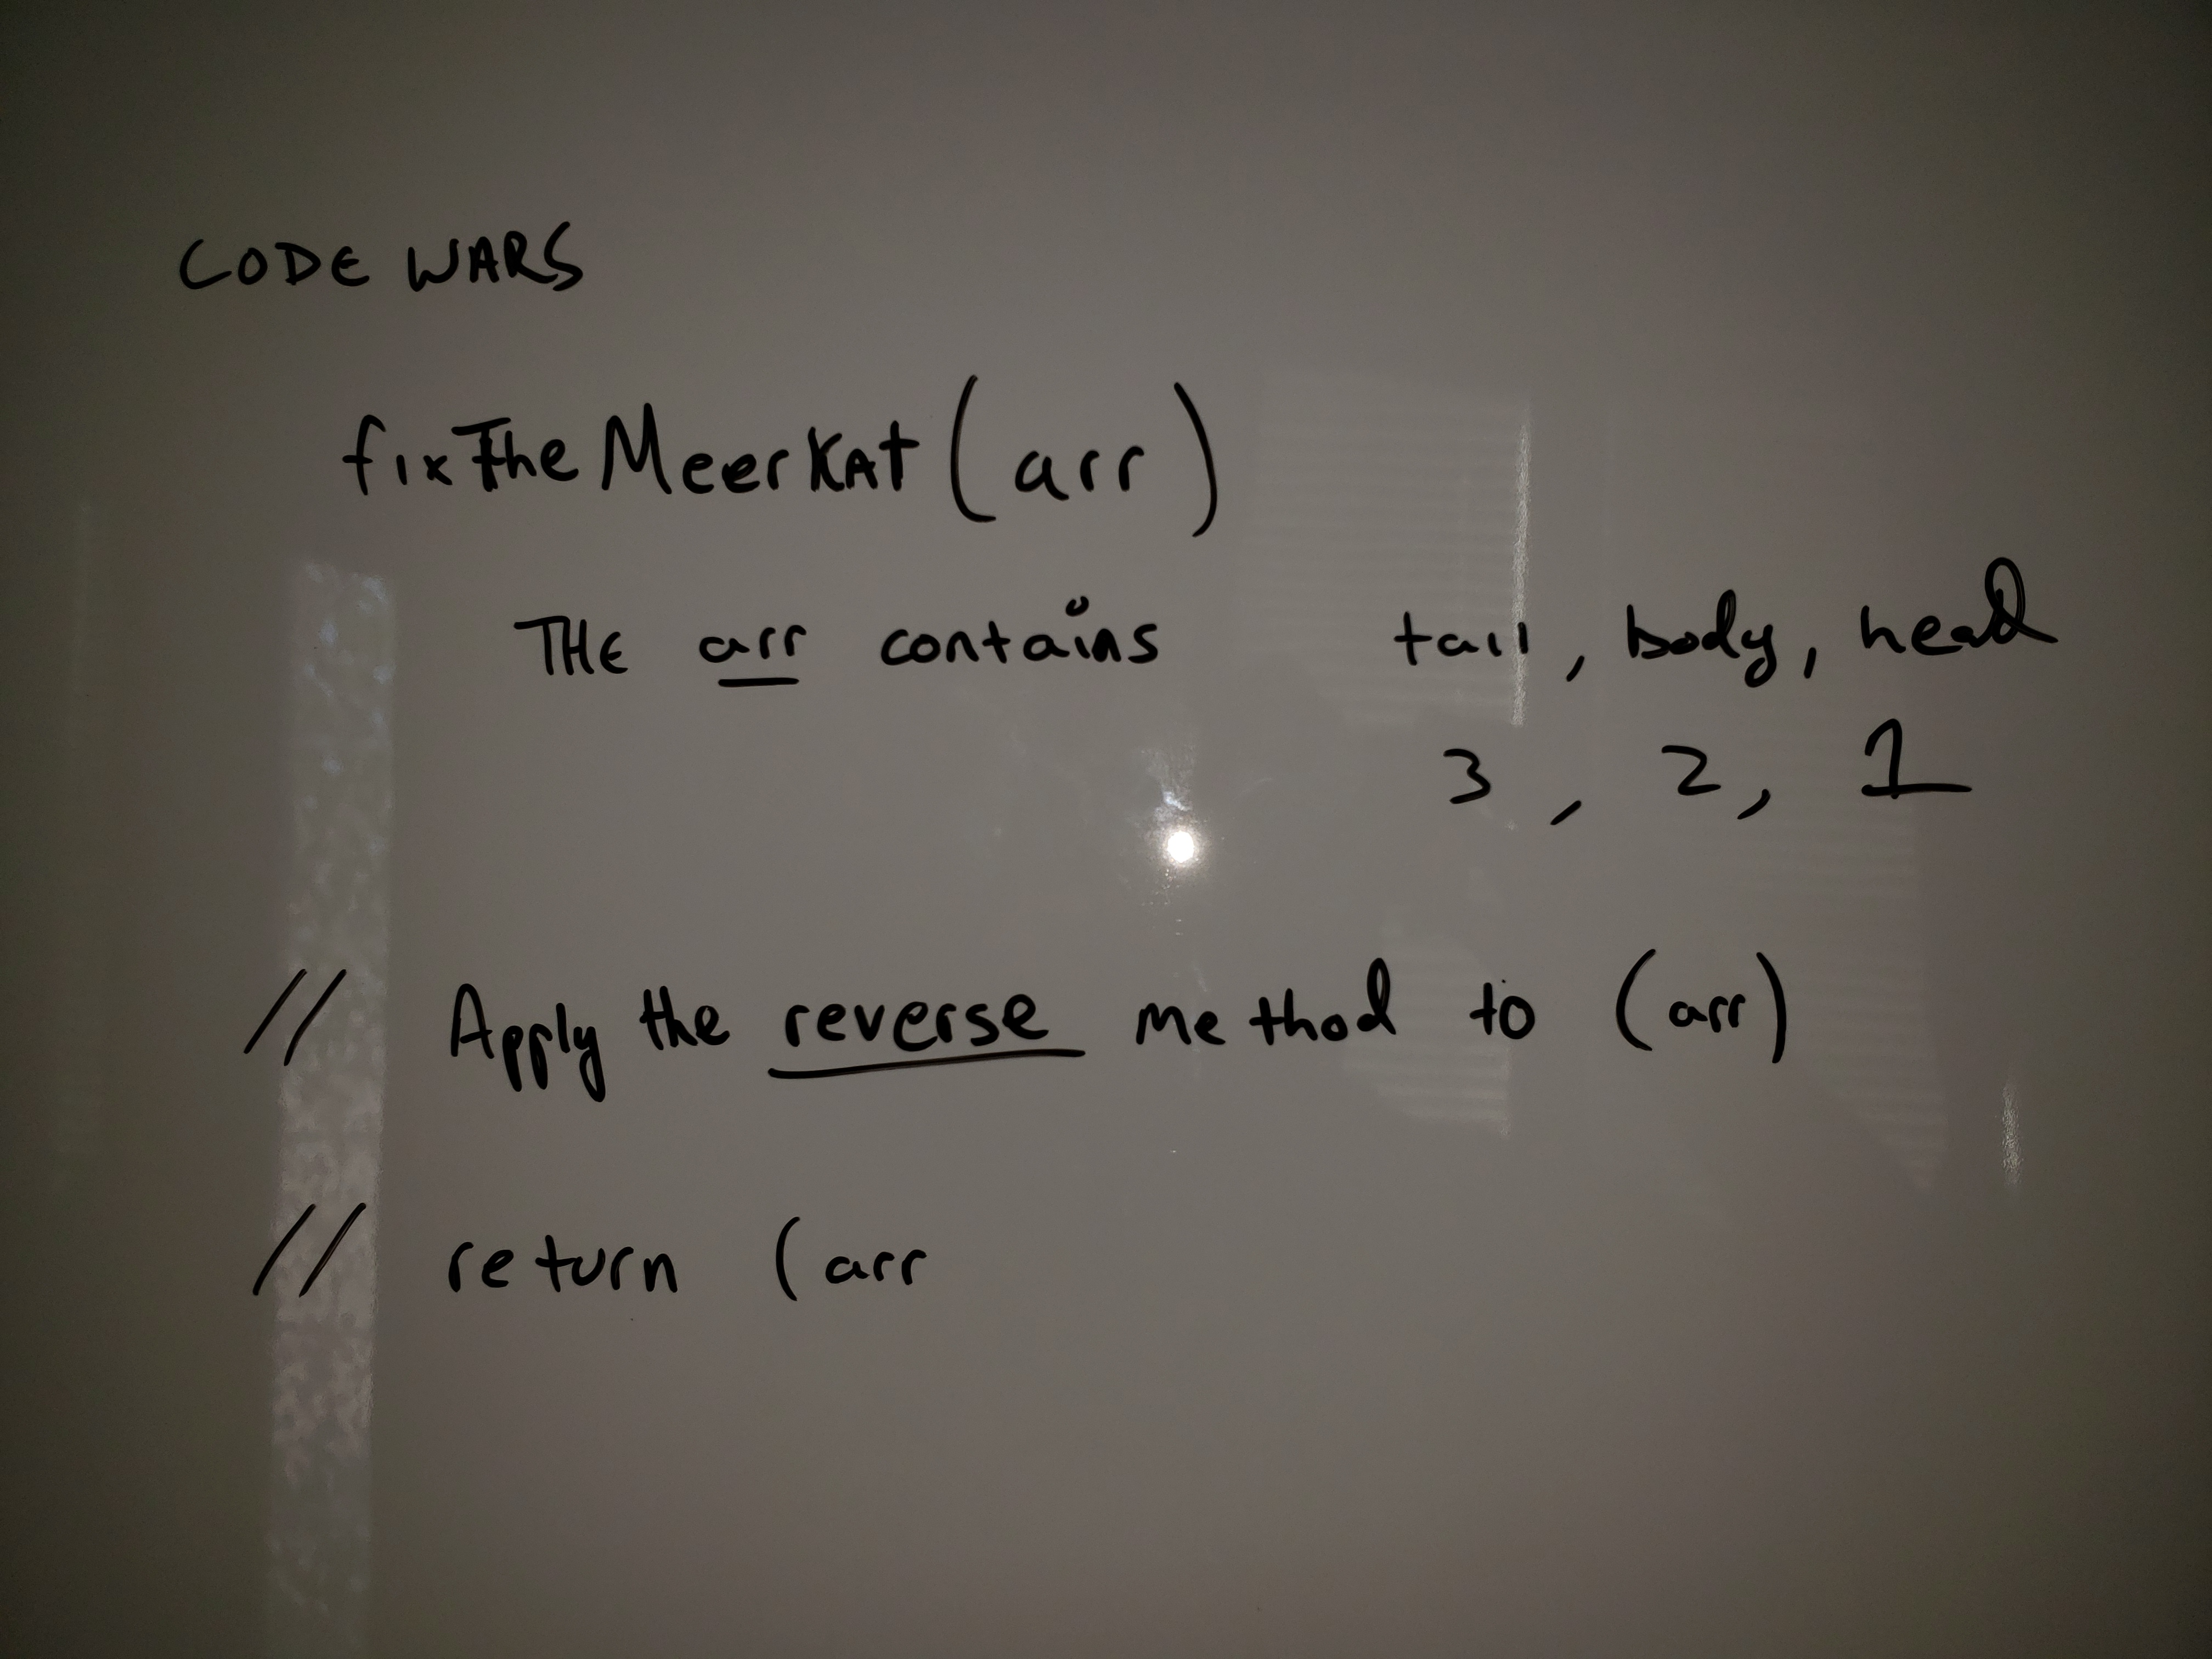 CODE WARS
fixTheMeerKAt (arr)
THE arr contains tail, body, head
3, 2, 1
// Apply the reverse method to (arr)
// return (arr